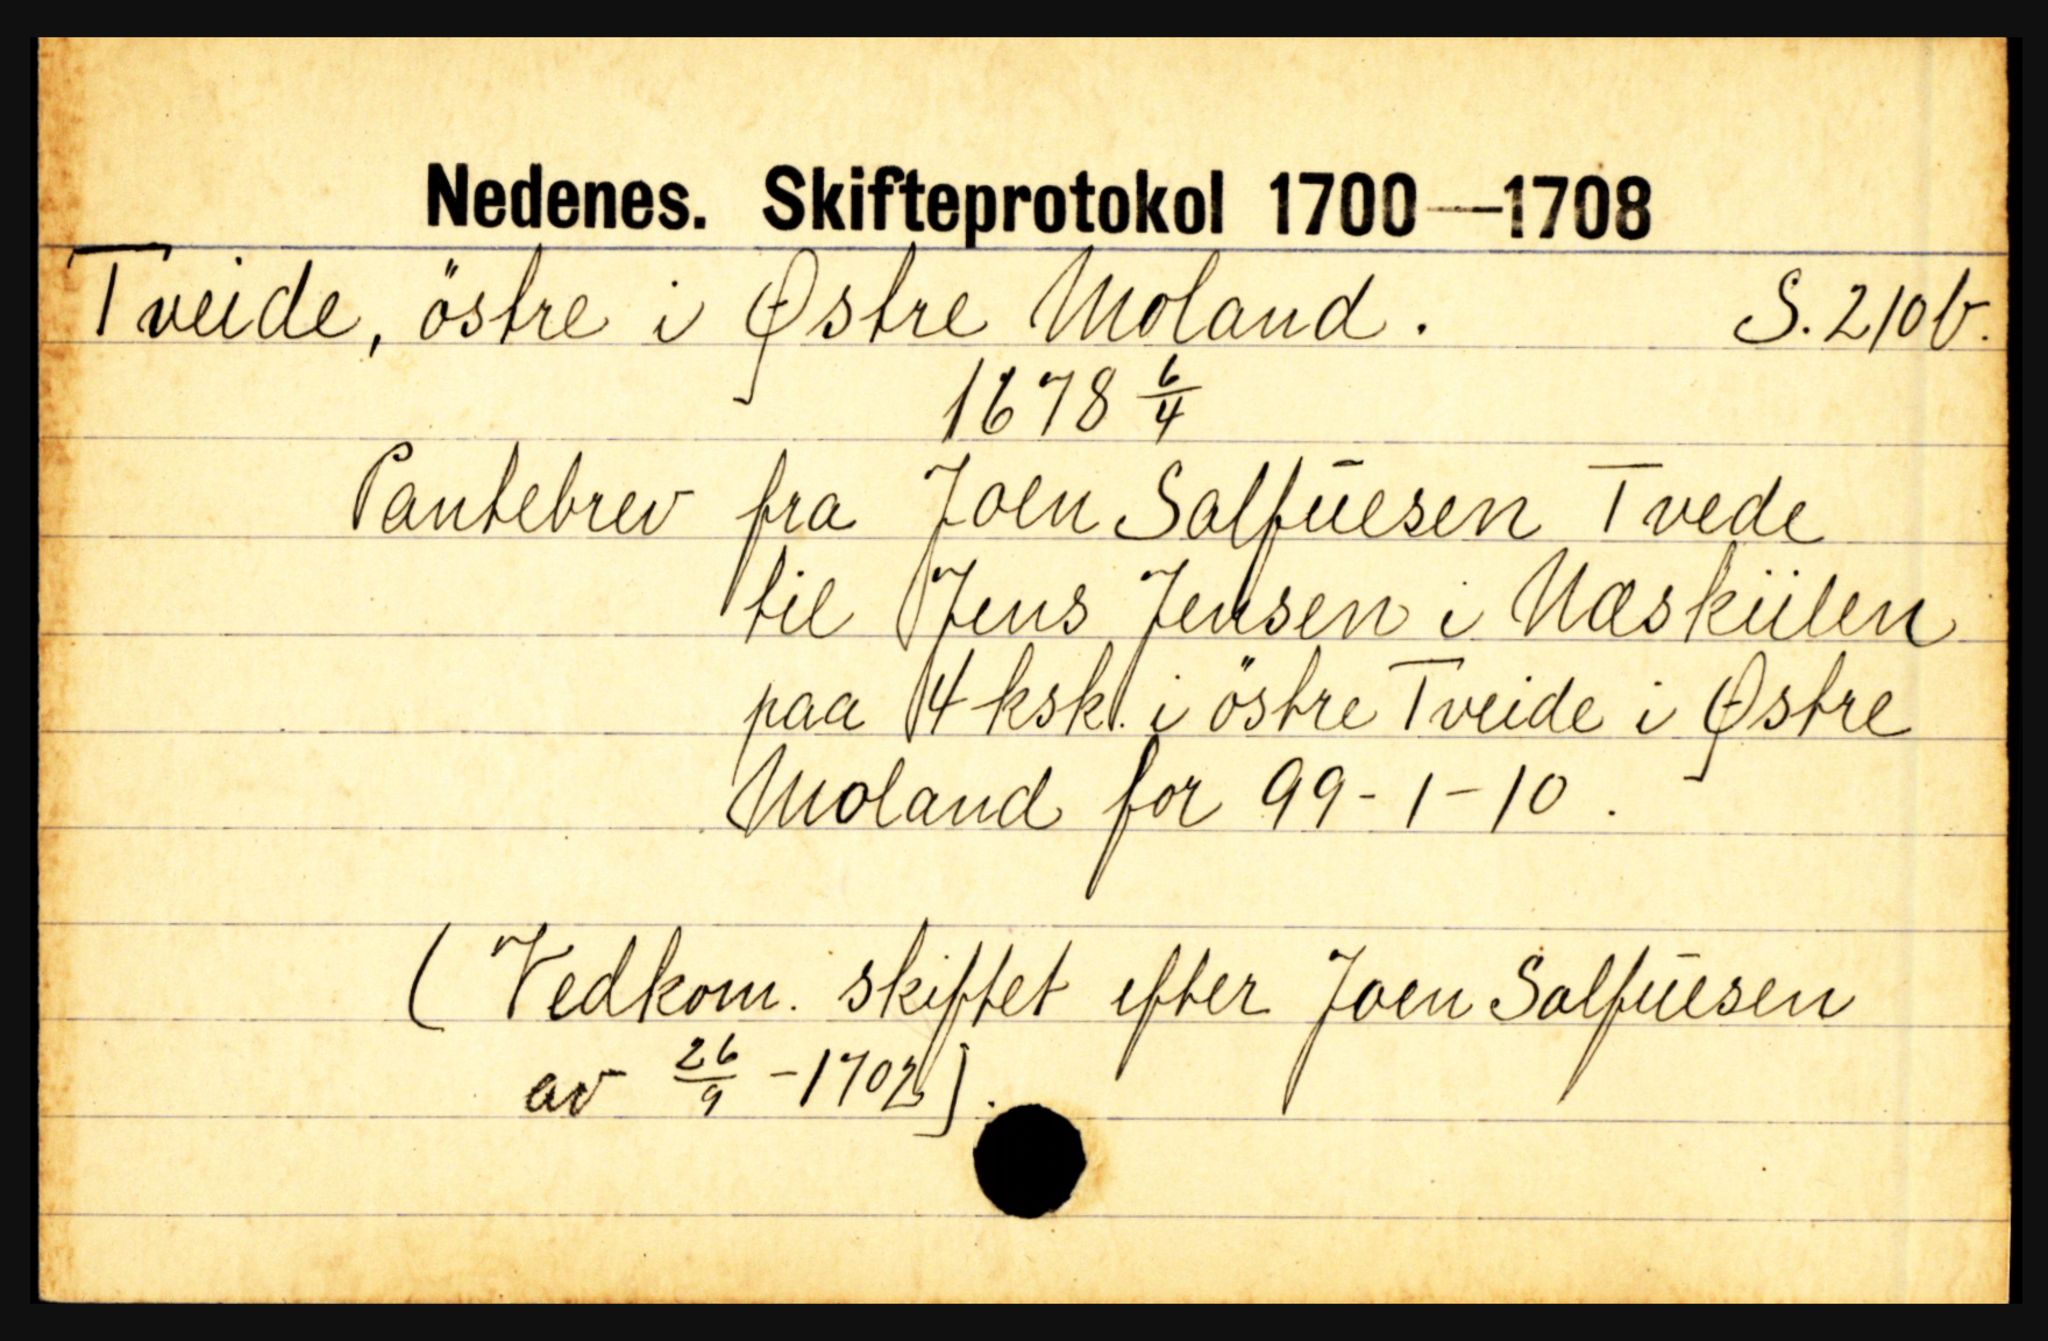 Nedenes. Skifteprotokol 1700—1708
Tveide, östre i Østre Moland. S. 210b.
1678 6/4
Pantebrev fra Joen Salfūesen Tvede
til Jens Jensen i Næskiilen
paa 4 ksk. i östre Tveide i Østre
Moland for 99-1-10.
(Vedkom. skiftet efter Joen Salfūesen
av 26/9 -1702).